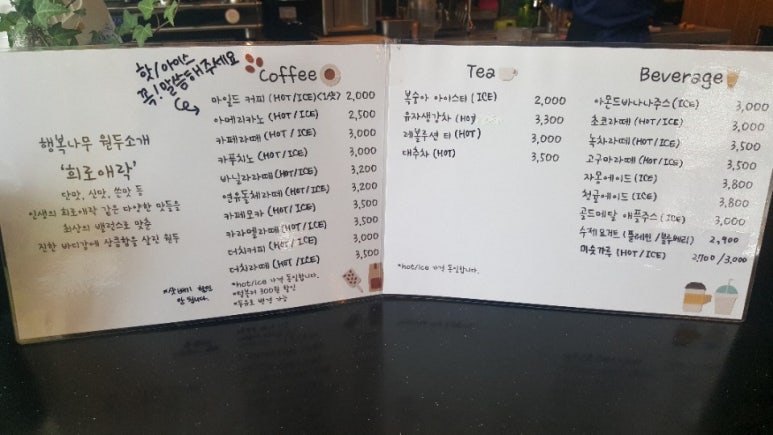 핫/아이스
꼭! 말씀해주세요
행복나무 원두소개
'희로애락'
단맛, 신맛, 쓴맛 등
인생의 희로애락 같은 다양한 맛들을
최상의 밸런스로 맞춘
진한 바디감에 상큼함을 살린 원두
Coffee
마일드 커피 (HOT/ICE)<1샷> 2,000
아메리카노 (HOT/ICE) 2,500
카페라떼 (HOT/ICE) 3,000
카푸치노 (HOT/ICE) 3,000
바닐라라떼 (HOT/ICE) 3,200
연유돌체라떼 (HOT/ICE) 3,200
카페모카 (HOT/ICE) 3,500
카라멜라떼 (HOT/ICE) 3,500
더치커피 (HOT/ICE) 3,000
더치라떼 (HOT/ICE) 3,500
*hot/ice 가격 동일합니다.
*텀블러 300원 할인
*두유로 변경 가능
할인
안 됩니다.
Tea
복숭아 아이스티 (ICE) 2,000
유자생강차 (HOT) 3,300
레볼루션 티 (HOT) 3,000
대추차 (HOT) 3,500
*hot/ice 가격 동일합니다.
Beverage
아몬드바나나주스 (ICE) 3,000
초코라떼 (HOT/ICE) 3,000
녹차라떼 (HOT/ICE) 3,500
고구마라떼 (HOT/ICE) 3,500
자몽에이드 (ICE) 3,800
청귤에이드 (ICE) 3,800
골드메달 애플주스 (ICE) 3,000
수제요거트 (플레인/블루베리) 2,900
미숫가루 (HOT/ICE) 2,700/3,000